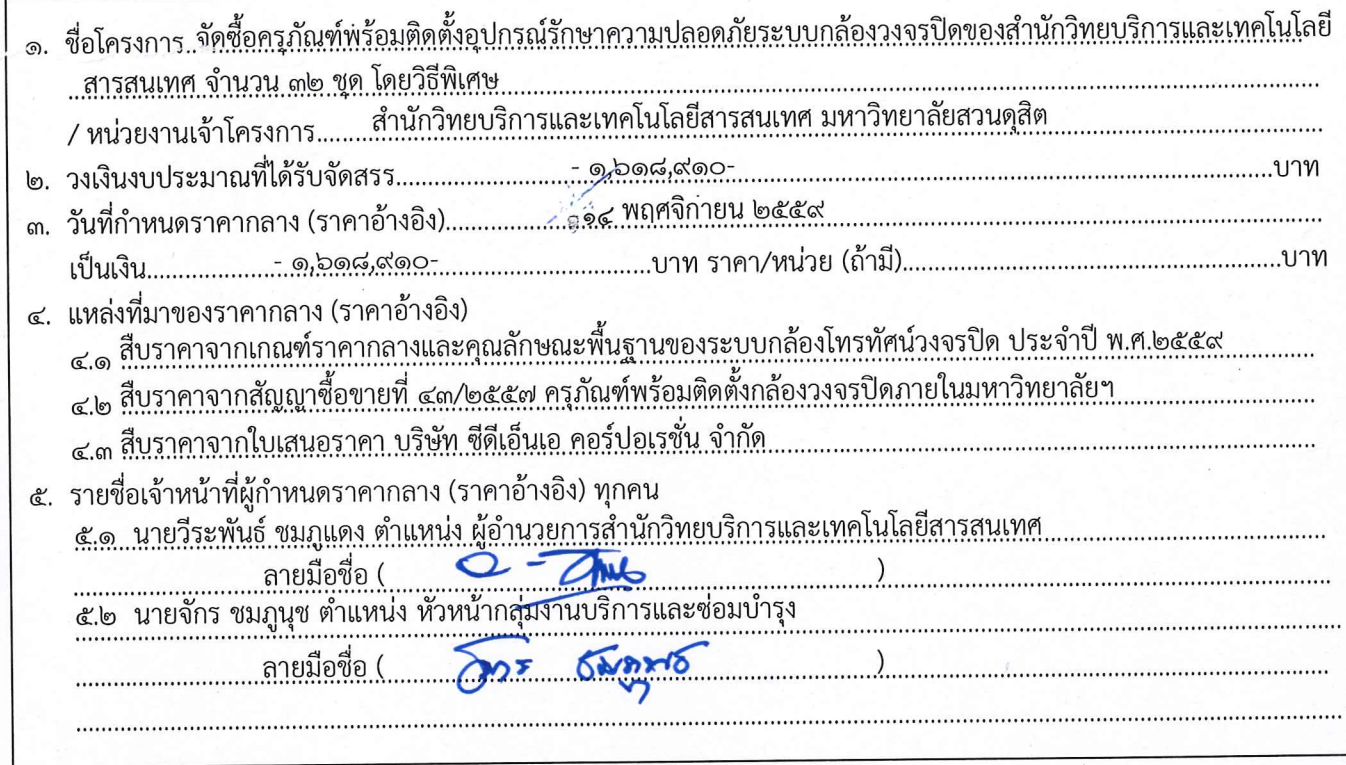 ๑. ชื่อโครงการ..จัดซื้อครุภัณฑ์พร้อมติดตั้งอุปกรณ์รักษาความปลอดภัยระบบกล้องวงจรปิดของสำนักวิทยบริการและเทคโนโลยี
สารสนเทศ จำนวน ๓๒ ชุด โดยวิธีพิเศษ
/ หน่วยงานเจ้าโครงการ........สำนักวิทยบริการและเทคโนโลยีสารสนเทศ มหาวิทยาลัยสวนดุสิต
๒. วงเงินงบประมาณที่ได้รับจัดสรร........- ๑,๖๑๘,๙๑๐-........บาท
๓. วันที่กำหนดราคากลาง (ราคาอ้างอิง)........๑๔ พฤศจิกายน ๒๕๕๙
เป็นเงิน........- ๑,๖๑๘,๙๑๐-........บาท ราคา/หน่วย (ถ้ามี)........บาท
๔. แหล่งที่มาของราคากลาง (ราคาอ้างอิง)
๔.๑ สืบราคาจากเกณฑ์ราคากลางและคุณลักษณะพื้นฐานของระบบกล้องโทรทัศน์วงจรปิด ประจำปี พ.ศ.๒๕๕๙
๔.๒ สืบราคาจากสัญญาซื้อขายที่ ๔๓/๒๕๕๗ ครุภัณฑ์พร้อมติดตั้งกล้องวงจรปิดภายในมหาวิทยาลัยฯ
๔.๓ สืบราคาจากใบเสนอราคา บริษัท ซีดีเอ็นเอ คอร์ปอเรชั่น จำกัด
๕. รายชื่อเจ้าหน้าที่ผู้กำหนดราคากลาง (ราคาอ้างอิง) ทุกคน
๕.๑ นายวีระพันธ์ ชมภูแดง ตำแหน่ง ผู้อำนวยการสำนักวิทยบริการและเทคโนโลยีสารสนเทศ
ลายมือชื่อ ( )
๕.๒ นายจักร ชมภูนุช ตำแหน่ง หัวหน้ากลุ่มงานบริการและซ่อมบำรุง
ลายมือชื่อ ( )